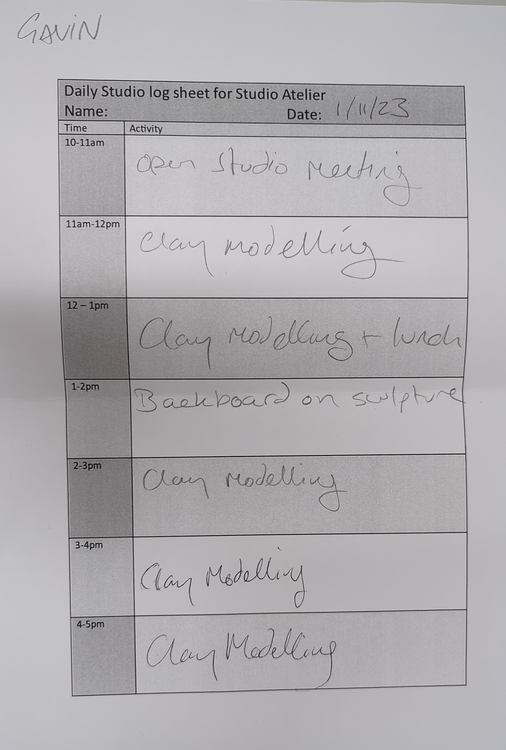 GAVIN
Daily Studio log sheet for Studio Atelier
Name: Date: 1/11/23
Time Activity
10-11am
Open Studio Meeting
11am-12pm
Clay modelling
12 – 1pm
Clay Modelling + lunch
1-2pm
Backboard on sculpture
2-3pm
Clay Modelling
3-4pm
Clay Modelling
4-5pm
Clay Modelling